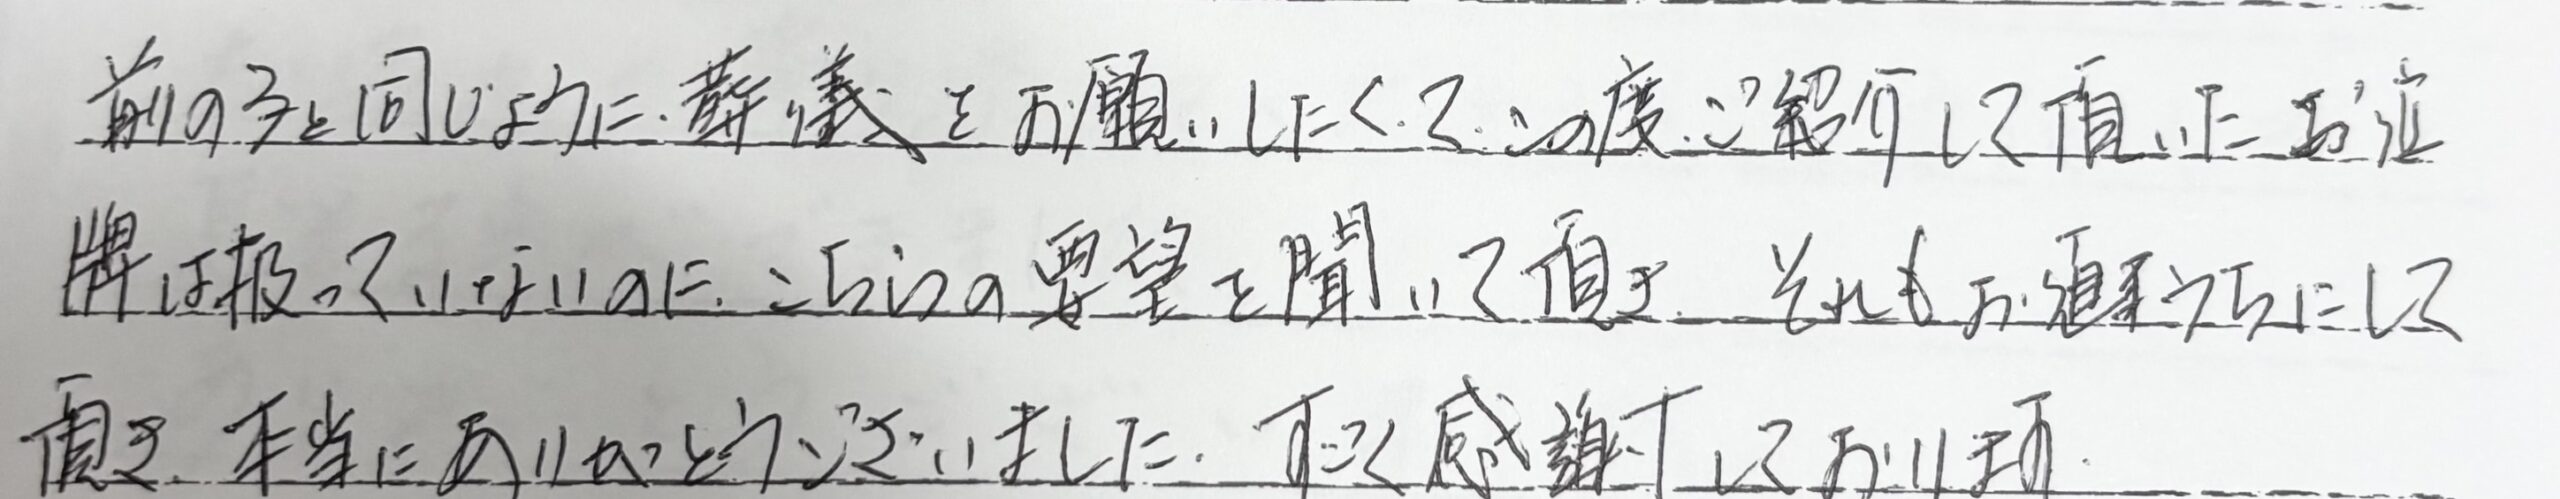 前の子と同じように葬儀をお願いしたくて、この度ご紹介して頂いたお位
牌は扱っていないのに、こちらの要望を聞いて頂き、それもお値打ちにして
頂き、本当にありがとうございました。すごく感謝しております。